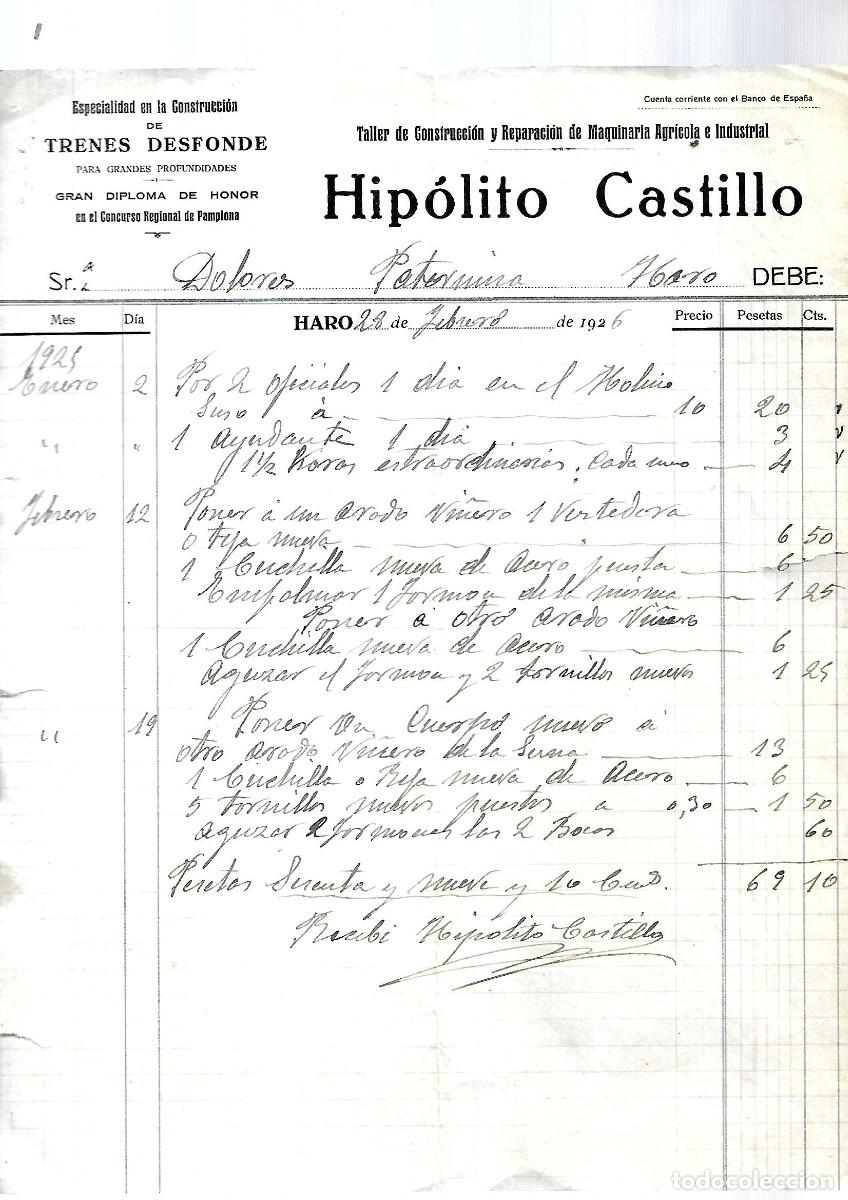 Especialidad en la Construcción
DE
TRENES DESFONDE
PARA GRANDES PROFUNDIDADES
GRAN DIPLOMA DE HONOR
en el Concurso Regional de Pamplona
Cuenta corriente con el Banco de España
Taller de Construcción y Reparación de Maquinaria Agrícola e Industrial
Hipólito Castillo
Sr.ª Dolores Paternina Haro DEBE:
Mes Día HARO 28 de Febrero de 1926 Precio Pesetas Cts.
1925
Enero 2 Por 2 oficiales 1 dia en el Molino
Suso á 10 20
" " 1 Ayudante 1 dia 3
1 1/2 Horas estraordinarias, Cada uno 4
Febrero 12 Poner á un arado Viñero 1 Vertedera
o teja nueva 6 50
1 Cuchilla nueva de Acero puesta 6
Empalmar 1 Formon de la misma 1 25
Poner á otro arado Viñero
1 Cuchilla nueva de acero 6
Aguzar el Formon y 2 tornillos nuevos 1 25
" 19 Poner un Cuerpo nuevo á
otro arado Viñero de la Serna 13
1 Cuchilla o Reja nueva de Acero 6
5 tornillos nuevos puestos a 0,30 1 50
Aguzar 2 Formones las 2 Bocas 60
Pesetas Sesenta y nueve y 10 Cent. 69 10
Recibi Hipolito Castillo
todocoleccion